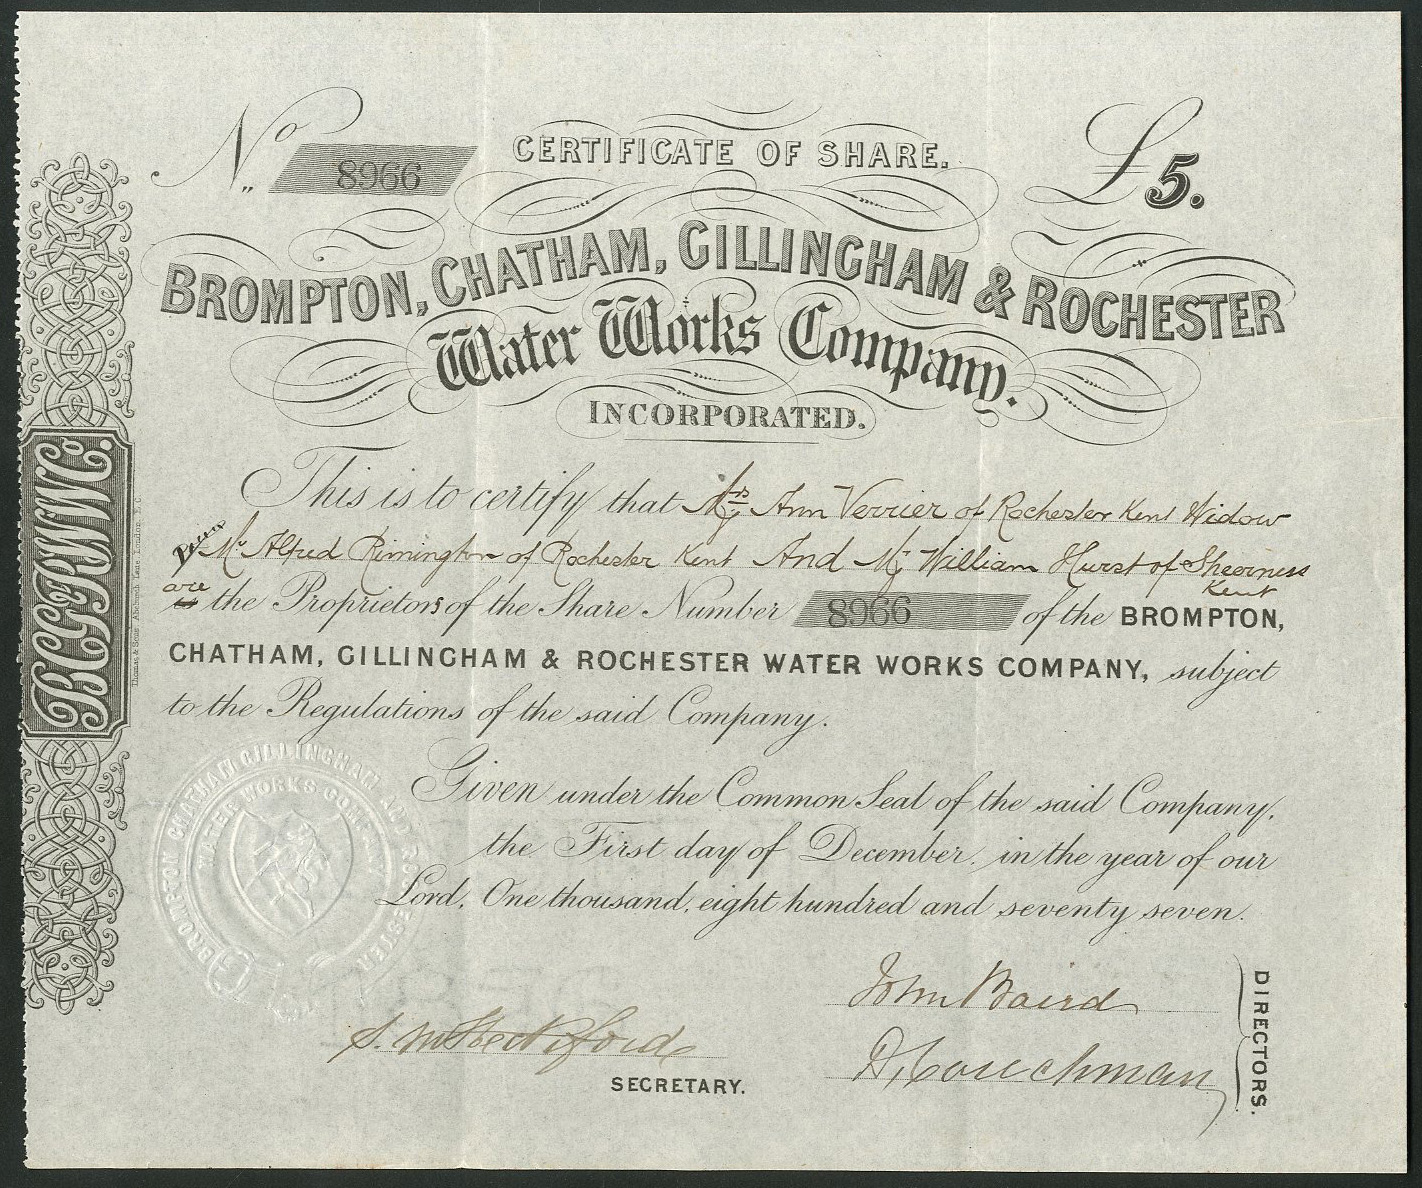 No. 8966 CERTIFICATE OF SHARE. £5.
BROMPTON, CHATHAM, GILLINGHAM & ROCHESTER
Water Works Company.
INCORPORATED.
This is to certify that Mrs Ann Verrier of Rochester Kent Widow
Mr Alfred Rimington of Rochester Kent And Mr William Hurst of Sheerness
Kent
are
is the Proprietors of the Share Number 8966 of the BROMPTON,
CHATHAM, GILLINGHAM & ROCHESTER WATER WORKS COMPANY, subject
to the Regulations of the said Company.
Given under the Common Seal of the said Company,
the First day of December, in the year of our
Lord, One thousand, eight hundred and seventy seven.
John Baird
D, Couchman
DIRECTORS.
SECRETARY.
B.C.G.R.W.W.Co.
BROMPTON CHATHAM GILLINGHAM AND ROCHESTER
WATER WORKS COMPANY